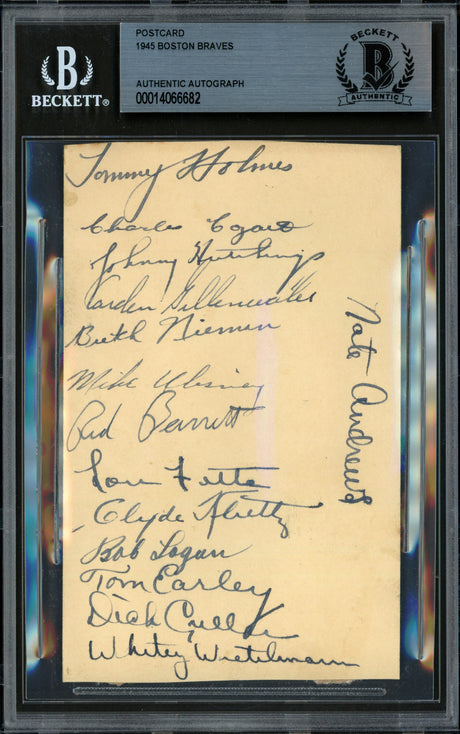 POSTCARD
1945 BOSTON BRAVES
AUTHENTIC AUTOGRAPH
00014066682
B
BECKETT®
BECKETT
B
AUTHENTIC
Tommy Holmes
Charles
Johnny Hutchings
Carden Gillenwater
Butch Nieman
Mike Ulisney
Red Barrett
Lou Fette
Clyde Kluttz
Bob Logan
Tom Earley
Dick Culler
Whitey Wietelmann
Nate Andrews